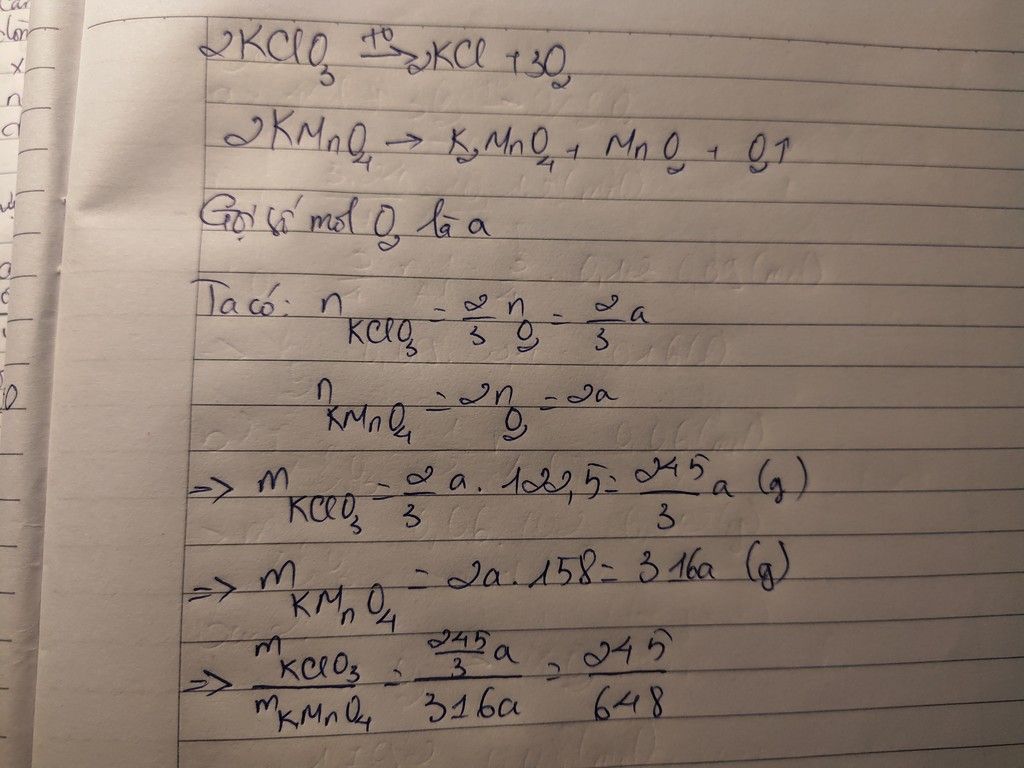 2KClO₃ →(t⁰) 2KCl + 3O₂
2KMnO₄ → K₂MnO₄ + MnO₂ + O₂↑
Gọi số mol O₂ là a
Ta có: n KClO₃ = 2/3 n O₂ = 2/3 a
n KMnO₄ = 2n O₂ = 2a
=> m KClO₃ = 2/3 a . 122,5 = 245/3 a (g)
=> m KMnO₄ = 2a . 158 = 316a (g)
=> m KClO₃ / m KMnO₄ = (245/3 a) / 316a = 245/648